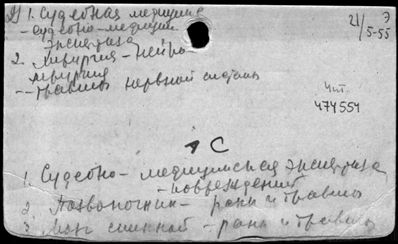 1. Судебная медицина
- судебно-медицин.
экспертиза
2. Хирургия - нейро-
хирургия
- травмы нервной системы
21/5-55
Э
Чит.
474554
АС
1. Судебно-медицинская экспертиза
- повреждений
2. Позвоночник - раны и травмы
3. Мозг спинной - раны и травмы